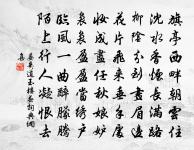 旗亭西畔朝雲住
沈水香煙長滿路
柳陰分到畫眉邊
花片飛來垂手處
妝成盡任秋娘妒
裊裊盈盈當繡戶
臨風一曲醉騰騰
陌上行人凝恨去
晏幾道玉樓春詞典網
集